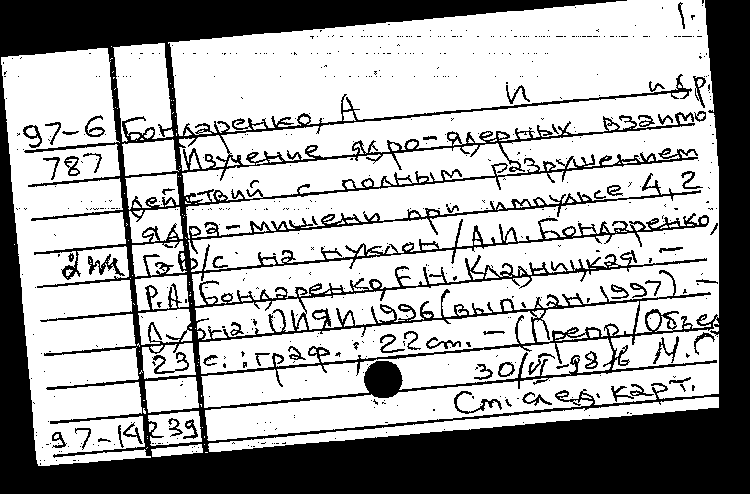 1.
97-6 Бондаренко, А И и др
787 Изучение ядро-ядерных взаимо-
действий с полным разрушением
ядра-мишени при импульсе 4,2
ГэВ/с на нуклон / А.И. Бондаренко,
Р.А. Бондаренко, Е.Н. Кладницкая. —
Дубна: ОИЯИ, 1996 (вып. дан. 1997). —
23 с. : граф. ; 22 cm. — (Препр. / Объед
30/VI-98 М.С
См. след. карт.
97-14239